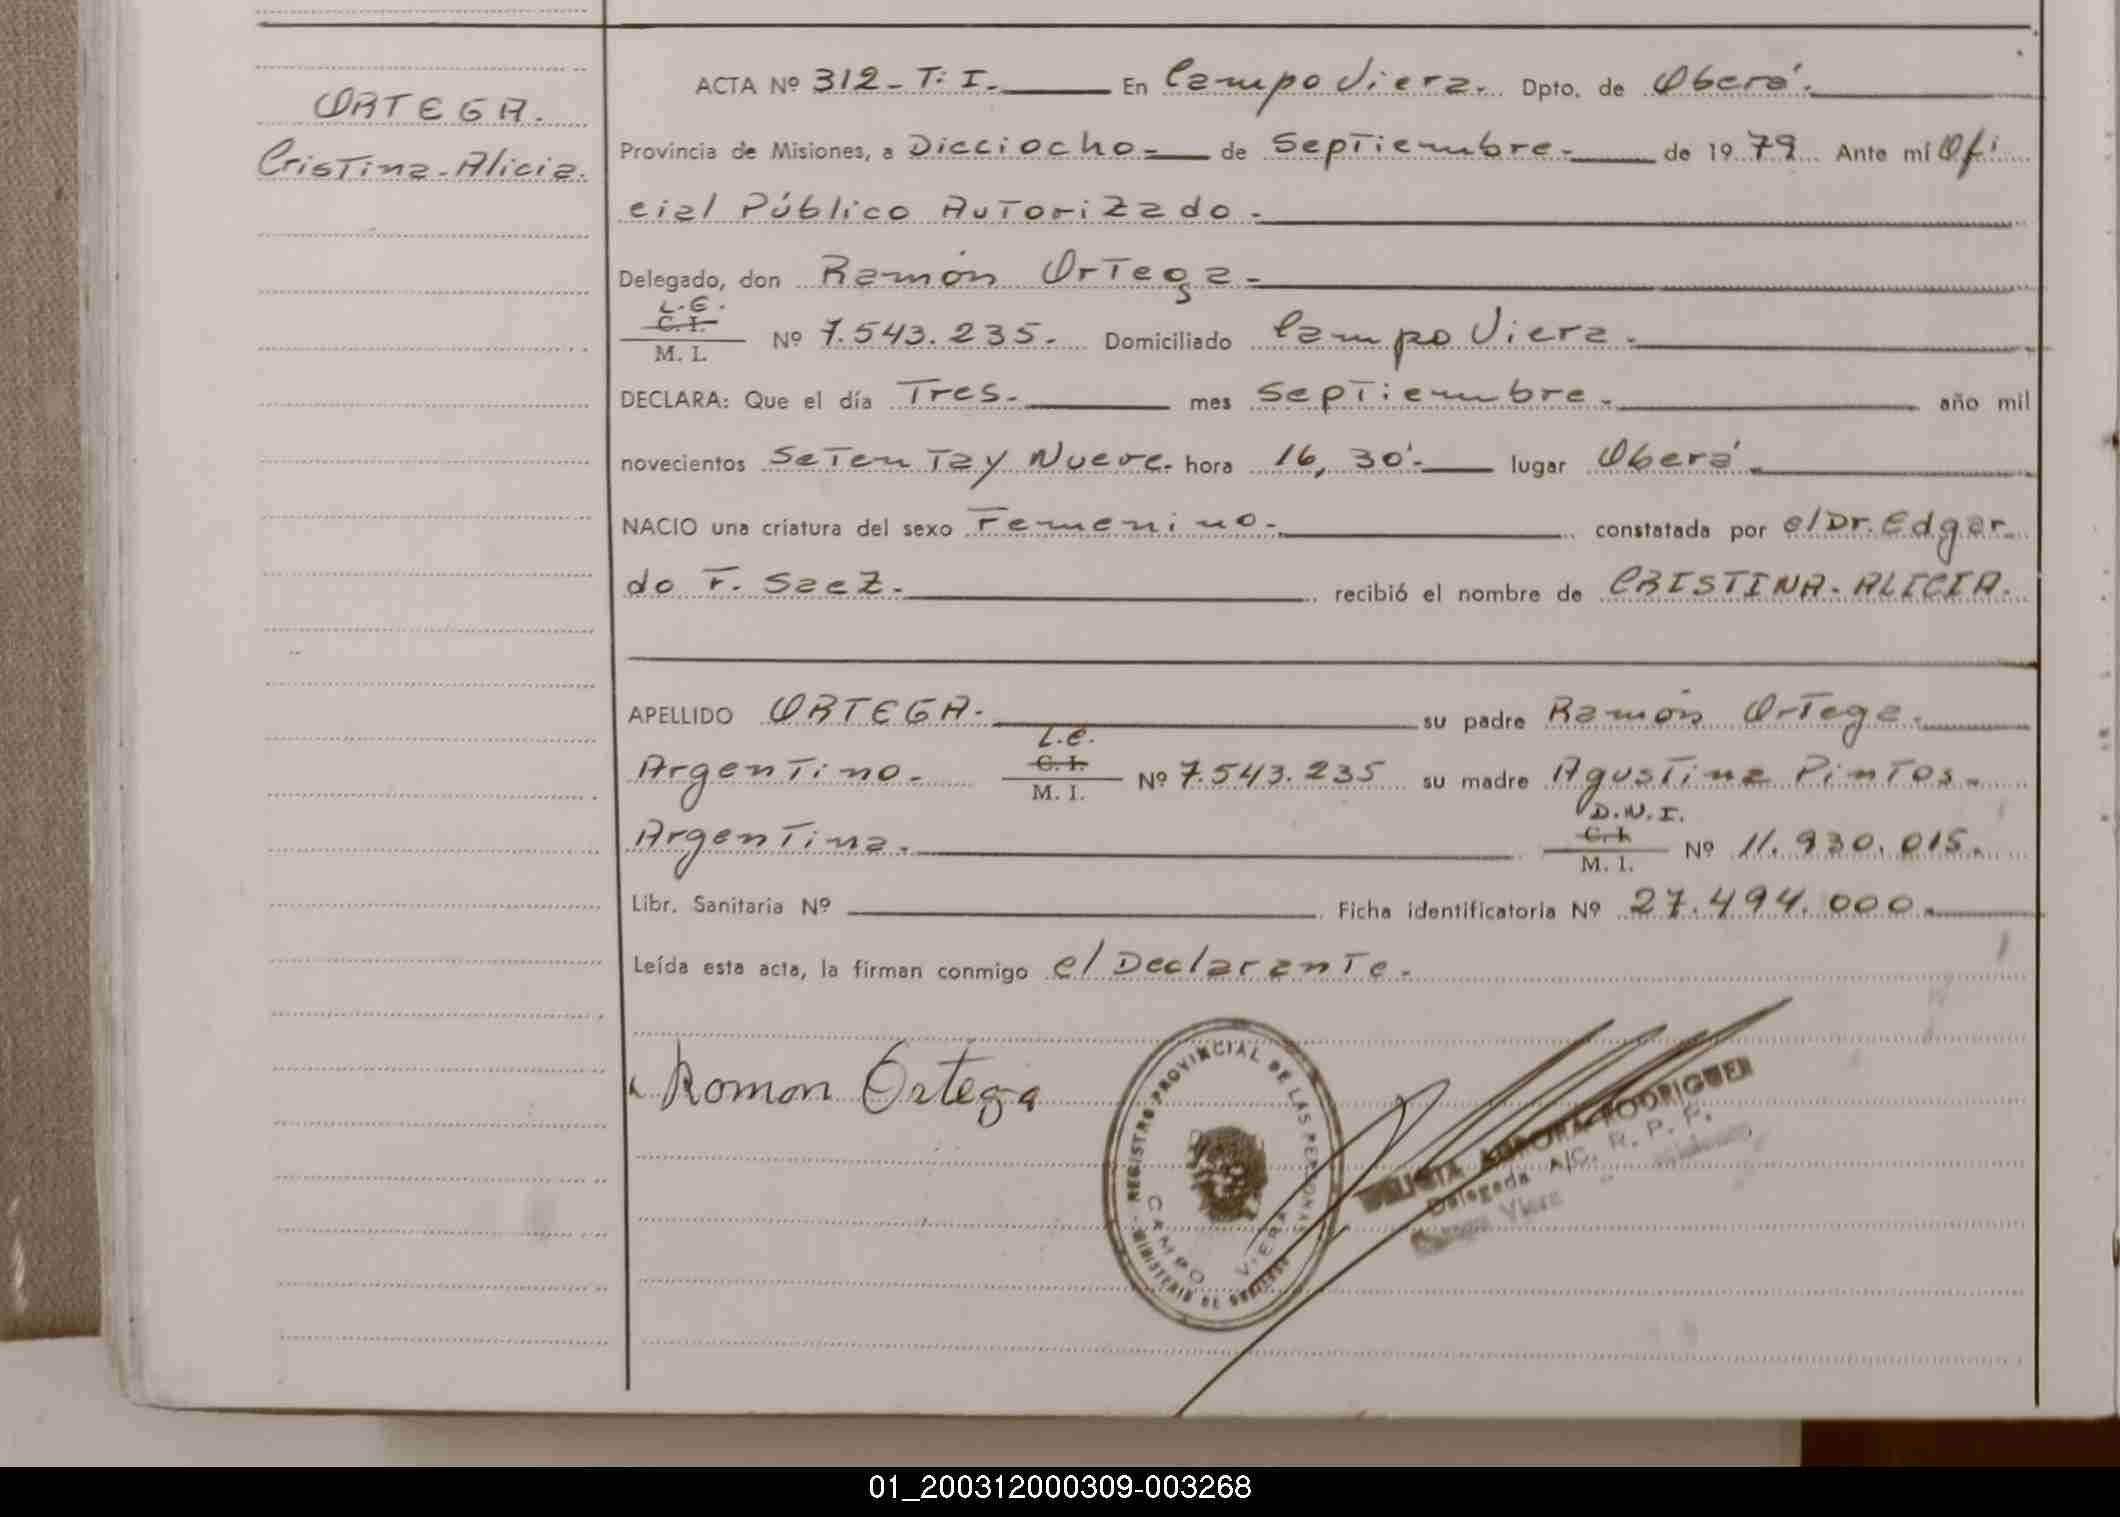 ORTEGA.
Cristina-Alicia.
ACTA Nº 312-T: I. En Campo Viera. Dpto. de Oberá.
Provincia de Misiones, a Dieciocho- de Septiembre- de 1979 Ante mí Ofi
cial Público Autorizado-
Delegado, don Ramón Ortega-
L.E.
C. I.
M. I. Nº 7.543.235. Domiciliado Campo Viera.
DECLARA: Que el día Tres. mes Septiembre. año mil
novecientos Setenta y Nueve. hora 16,30'- lugar Oberá.
NACIO una criatura del sexo Femenino- constatada por el Dr. Edgar
do F. Saez. recibió el nombre de CRISTINA-ALICIA.
APELLIDO ORTEGA- su padre Ramón Ortega.
L.E.
C. I.
Argentino- M. I. Nº 7.543.235 su madre Agustina Pintos.
D.N.I.
C. I.
Argentina. M. I. Nº 11.930.015.
Libr. Sanitaria Nº Ficha identificatoria Nº 27.494.000-
Leída esta acta, la firman conmigo el Declarante.
Romon Ortega
REGISTRO PROVINCIAL DE LAS PERSONAS
CAMPO VIERA
MINISTERIO DE GOBIERNO
AURORA RODRIGUEZ
Delegada A/C. R. P. P.
Campo Viera
01_200312000309-003268